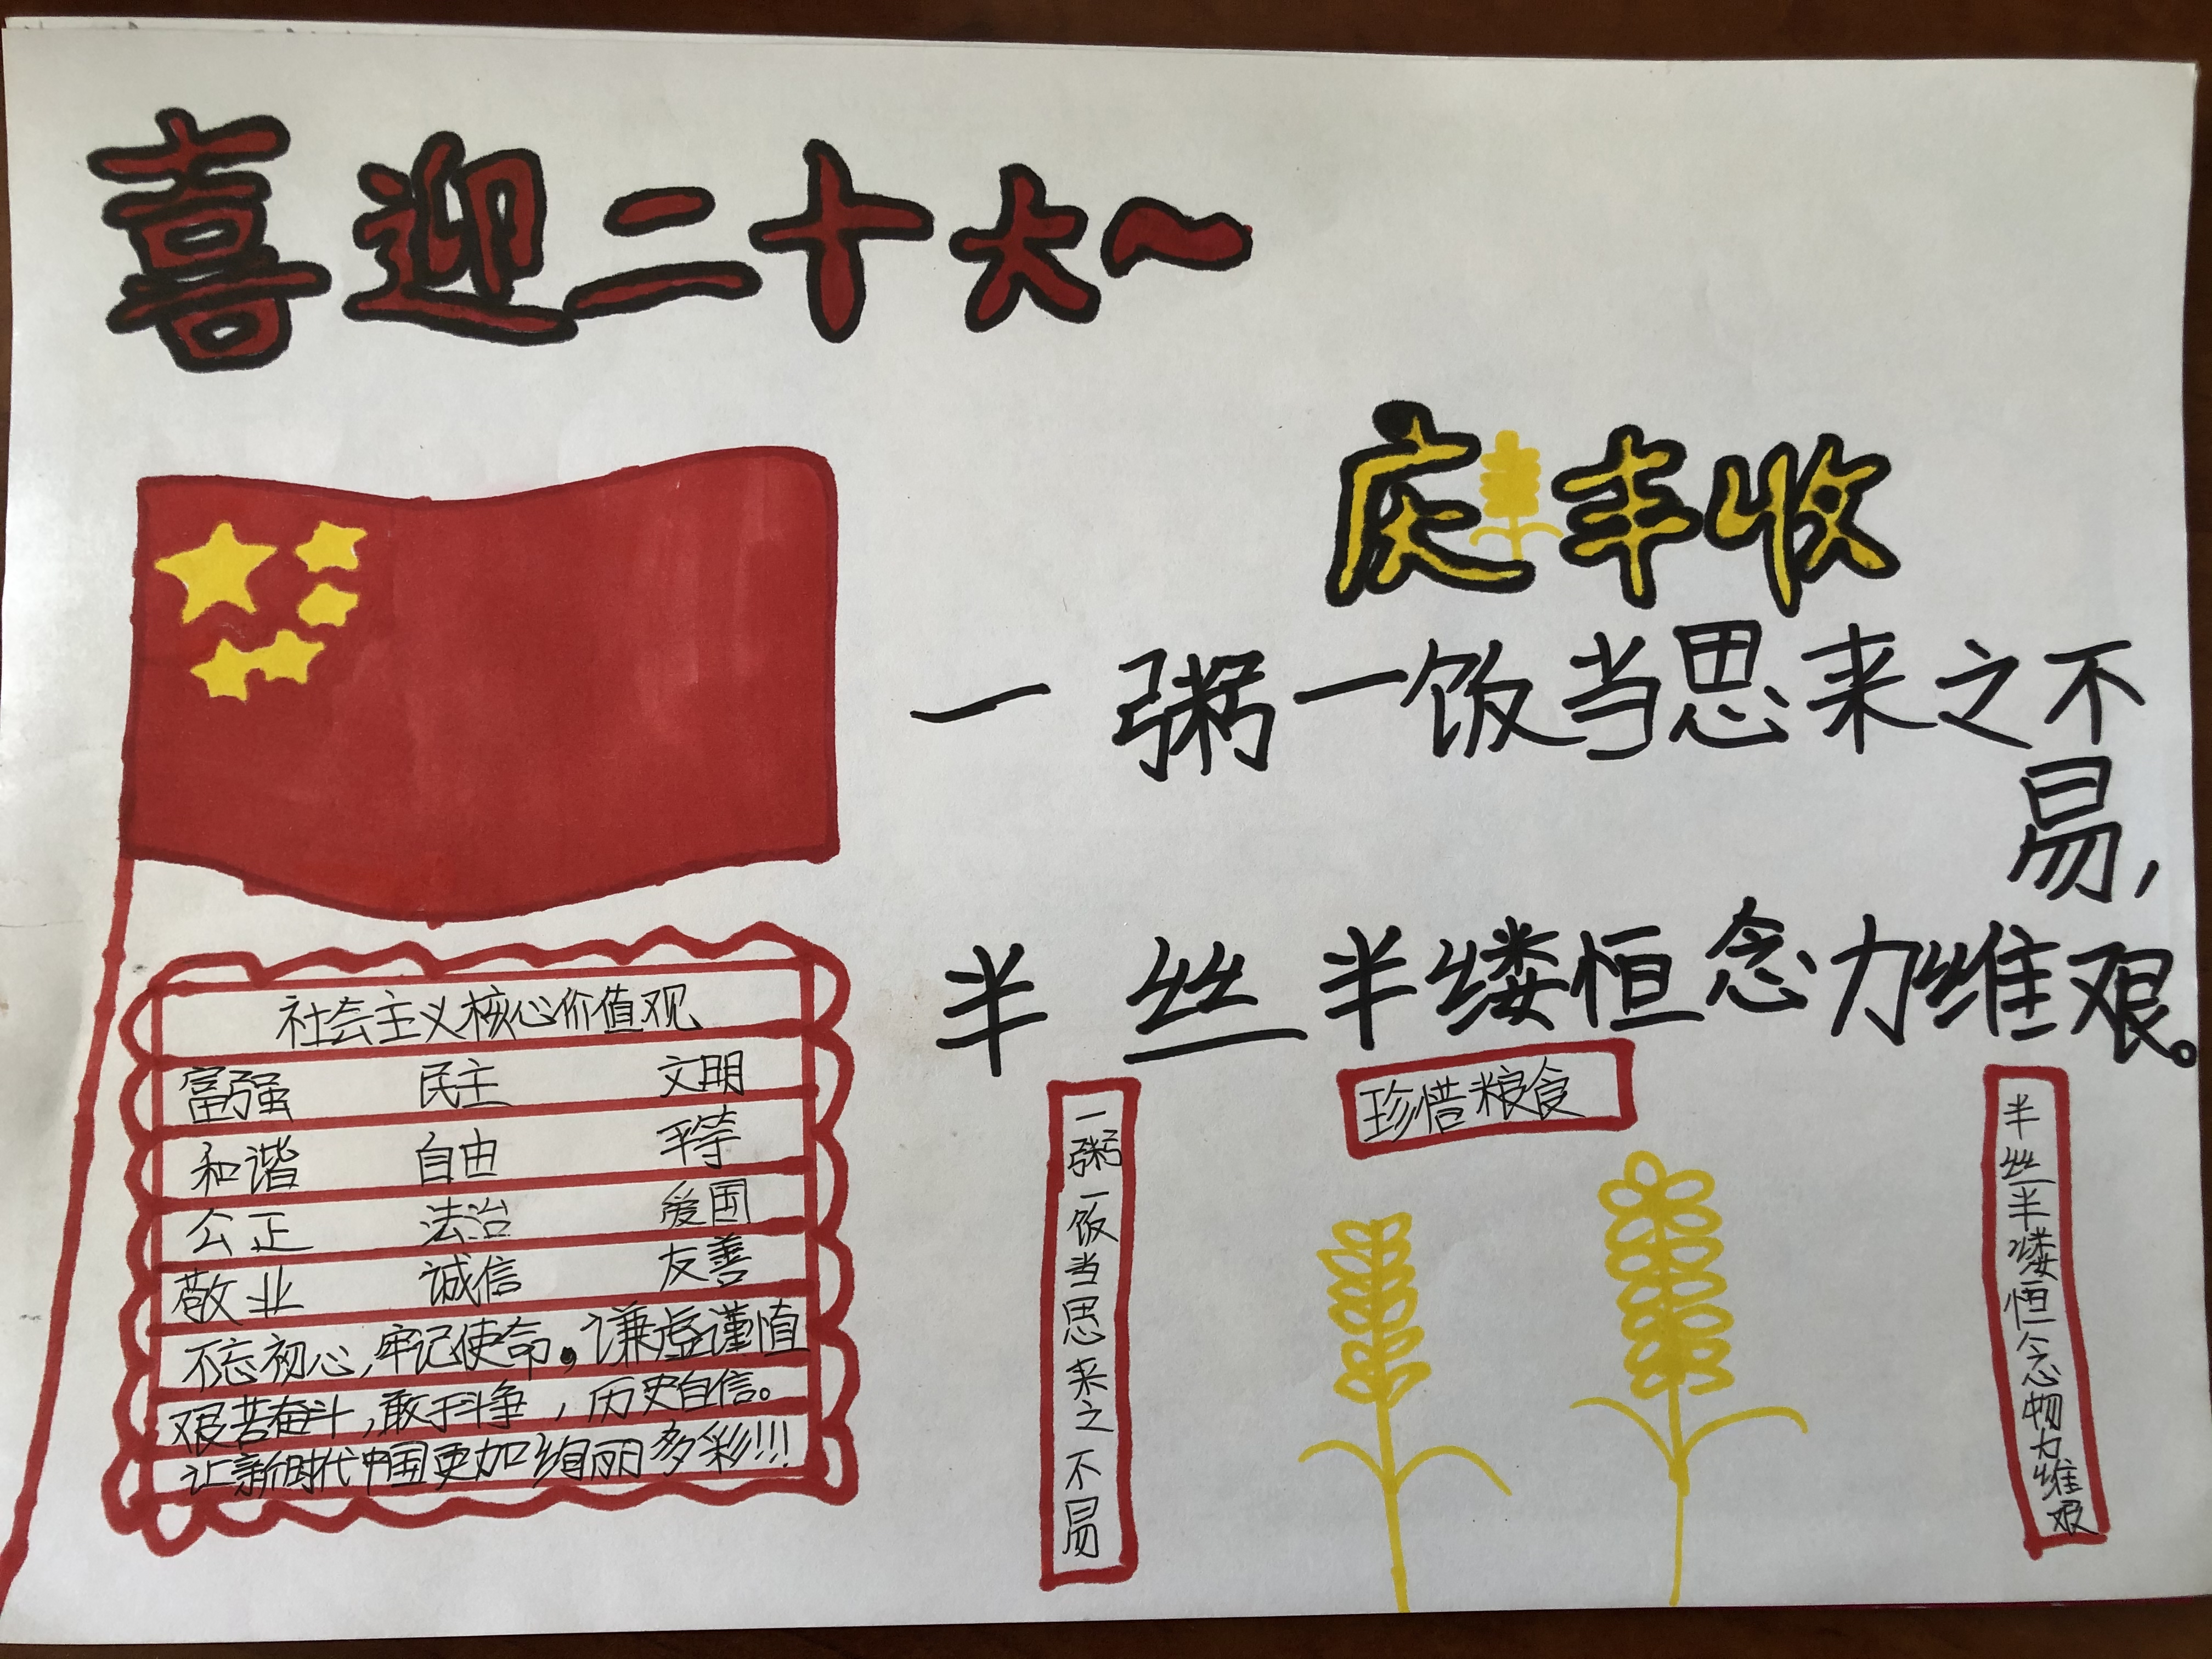 喜迎二十大~
庆丰收
一粥一饭当思来之不
易,
半丝半缕恒念力维艰。
社会主义核心价值观
富强 民主 文明
和谐 自由 平等
公正 法治 爱国
敬业 诚信 友善
不忘初心,牢记使命。谦虚谨慎
艰苦奋斗,敢于斗争,历史自信。
让新时代中国更加绚丽多彩!!!
一粥一饭当思来之不易
珍惜粮食
半丝半缕恒念物力维艰